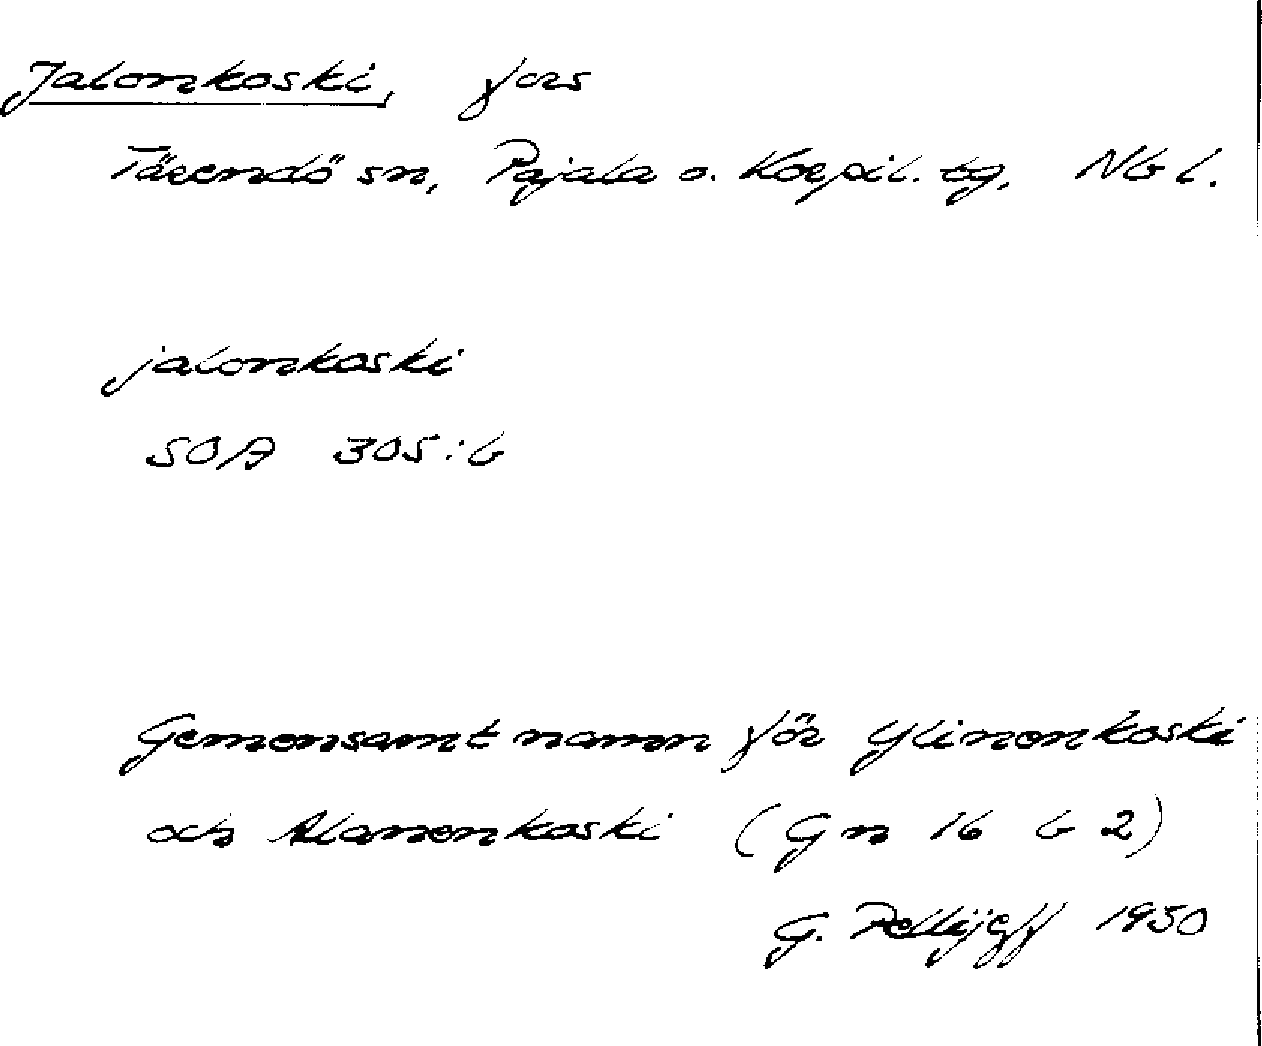 Jalonkoski, fors
Tärendö sn, Pajala o. Korpil. tg, Nb l.
jalonkoski
SOA 305:6
Gemensamt namn för Ylinenkoski
och Alanenkoski (Gn 16 b 2)
G. Pellijeff 1950